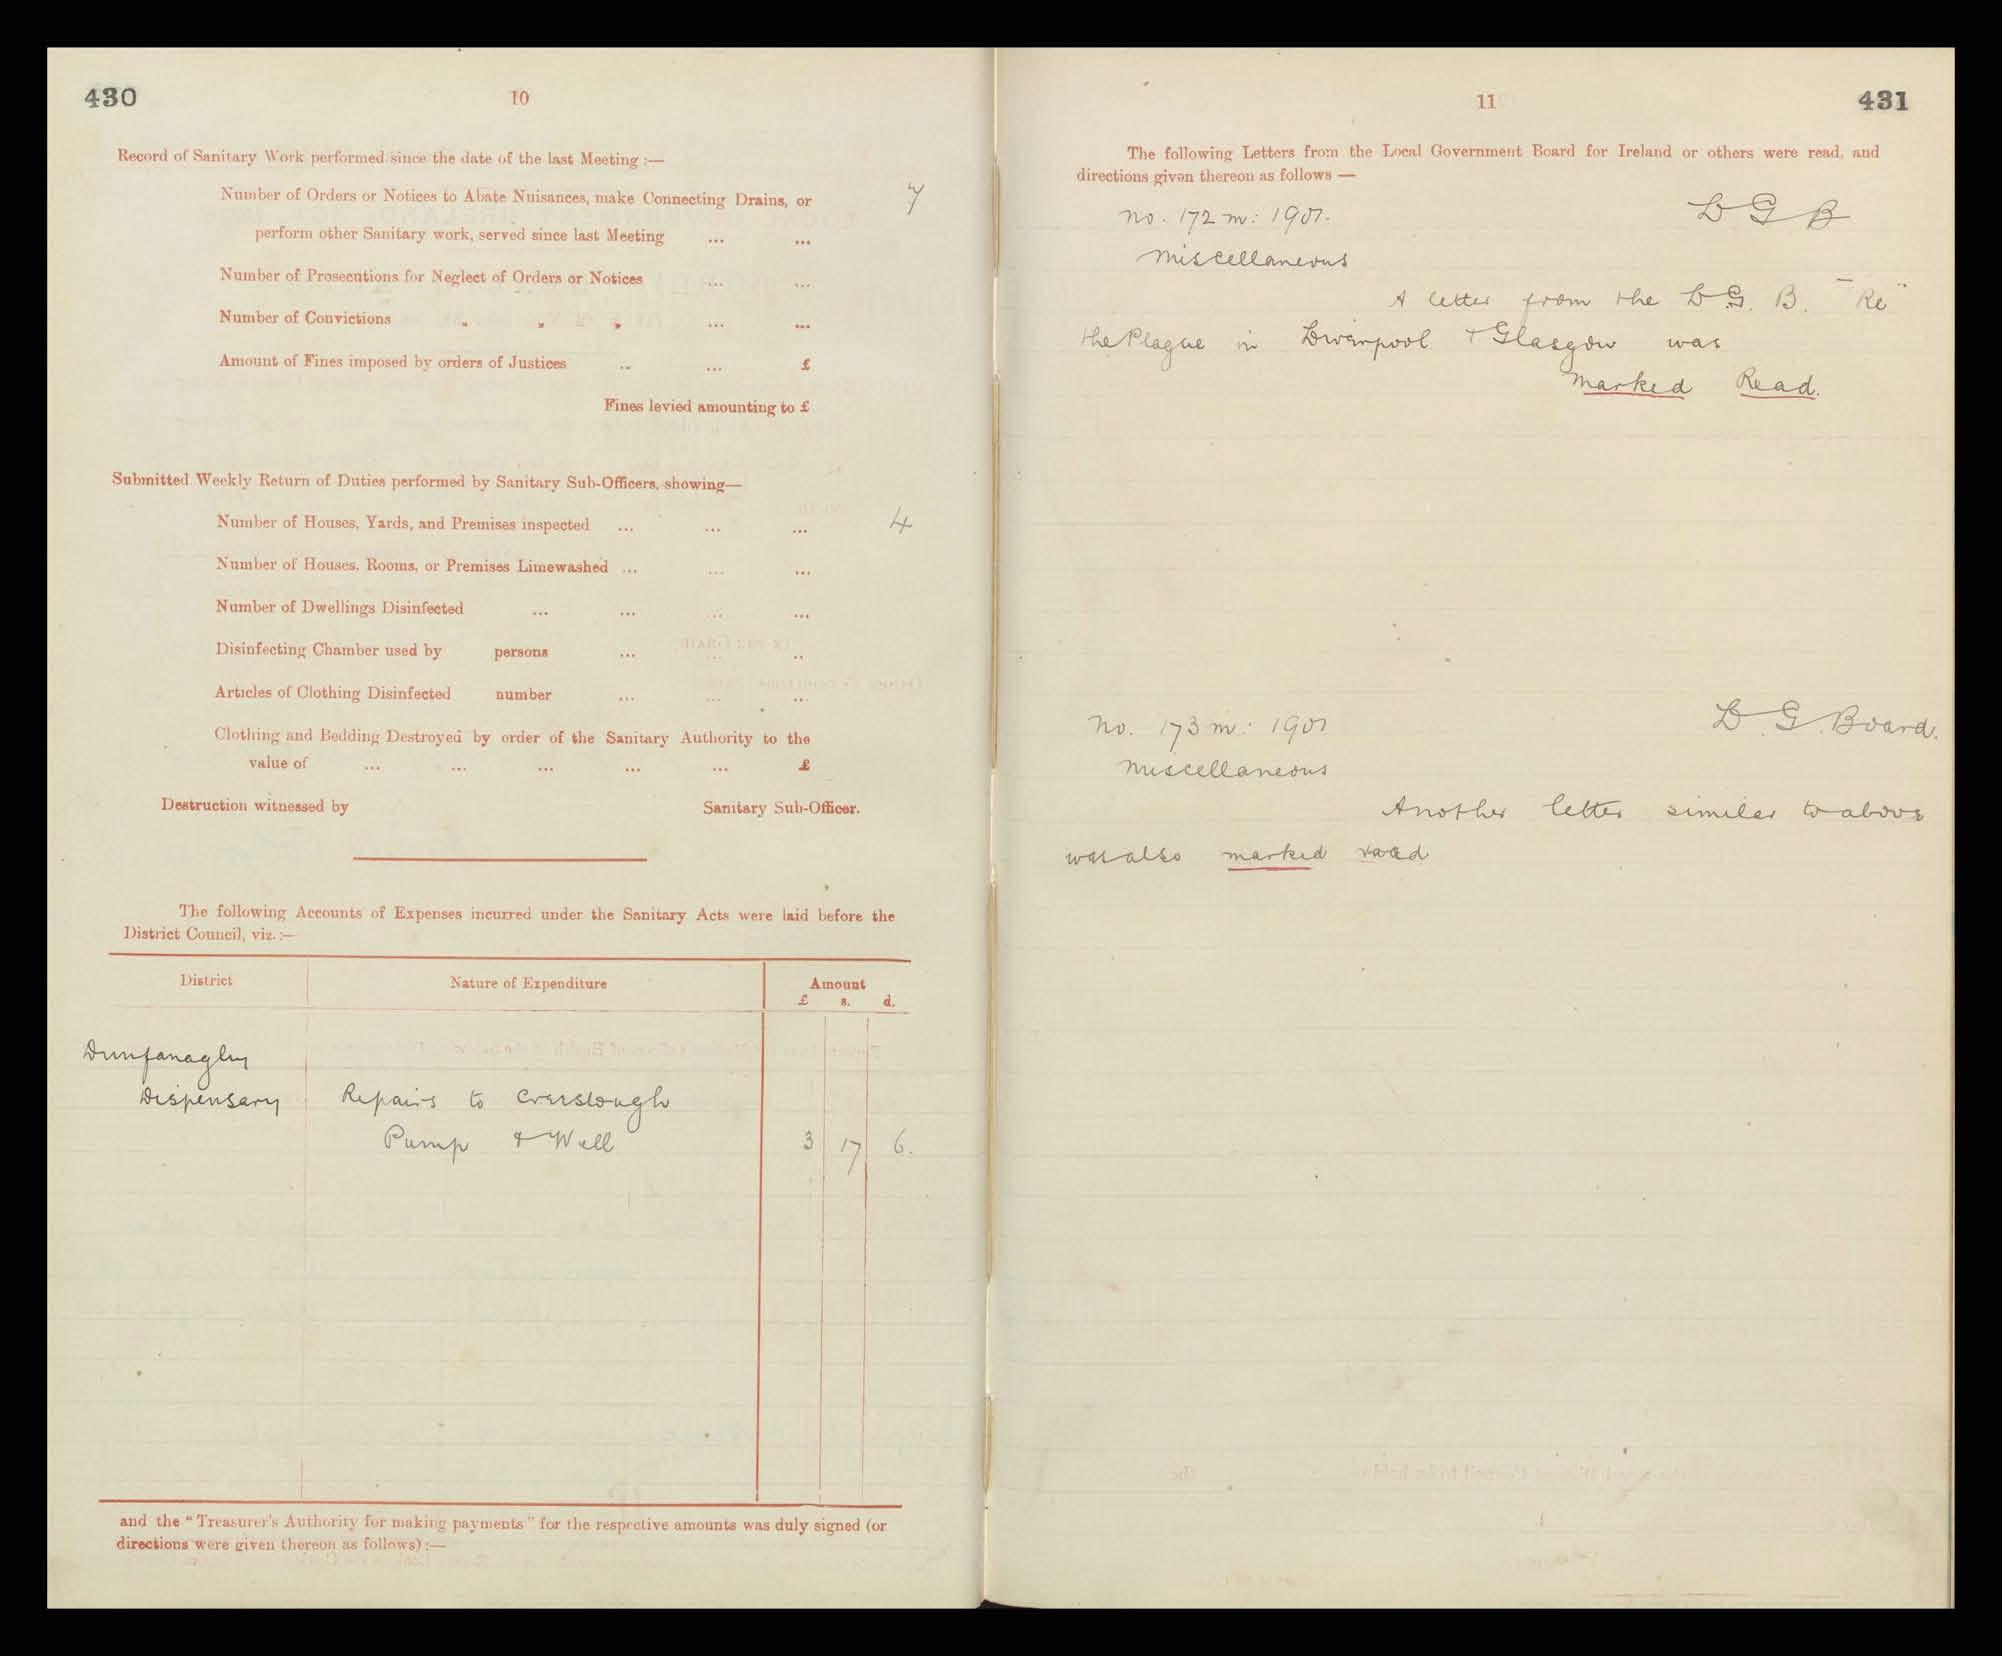 430
10
Record of Sanitary Work performed since the date of the last Meeting :—
Number of Orders or Notices to Abate Nuisances, make Connecting Drains, or 7
perform other Sanitary work, served since last Meeting ... ...
Number of Prosecutions for Neglect of Orders or Notices ... ...
Number of Convictions „ „ „ ... ...
Amount of Fines imposed by orders of Justices ... ... £
Fines levied amounting to £
Submitted Weekly Return of Duties performed by Sanitary Sub-Officers, showing—
Number of Houses, Yards, and Premises inspected ... ... ... 4
Number of Houses, Rooms, or Premises Limewashed ... ... ...
Number of Dwellings Disinfected ... ... ... ...
Disinfecting Chamber used by persons ... ... ..
Articles of Clothing Disinfected number ... ... ...
Clothing and Bedding Destroyed by order of the Sanitary Authority to the
value of ... ... ... ... ... £
Destruction witnessed by Sanitary Sub-Officer.
The following Accounts of Expenses incurred under the Sanitary Acts were laid before the
District Council, viz. :—
District Nature of Expenditure Amount
£ s. d.
Dunfanaghy
Dispensary Repairs to Creeslough
Pump & Well 3 17 6.
and the "Treasurer's Authority for making payments" for the respective amounts was duly signed (or
directions were given thereon as follows) :—
11
431
The following Letters from the Local Government Board for Ireland or others were read, and
directions given thereon as follows —
No. 172 M: 1901. L G B
Miscellaneous
A letter from the L G. B. "Re"
the Plague in Liverpool & Glasgow was
marked Read.
No. 173 M: 1901 L. G. Board.
Miscellaneous
Another letter similar to above
was also marked read